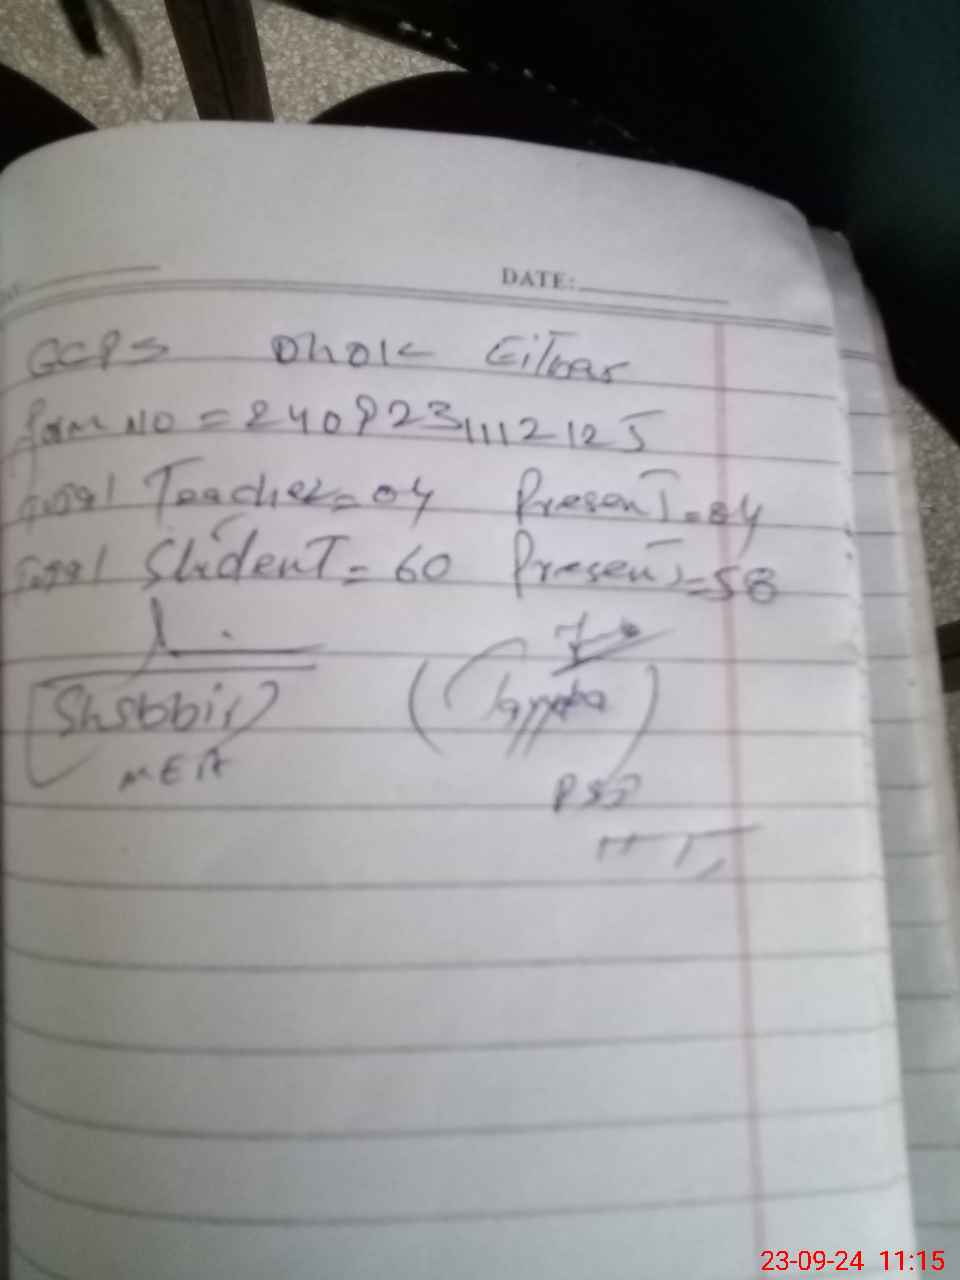 DATE:
GCPS Dhok Eitbar
form NO = 2409231112125
Total Teacher = 04 Present = 04
Total Student = 60 Present = 58
(Shabbir) (Tayyaba)
MEA
PST
HT
23-09-24 11:15